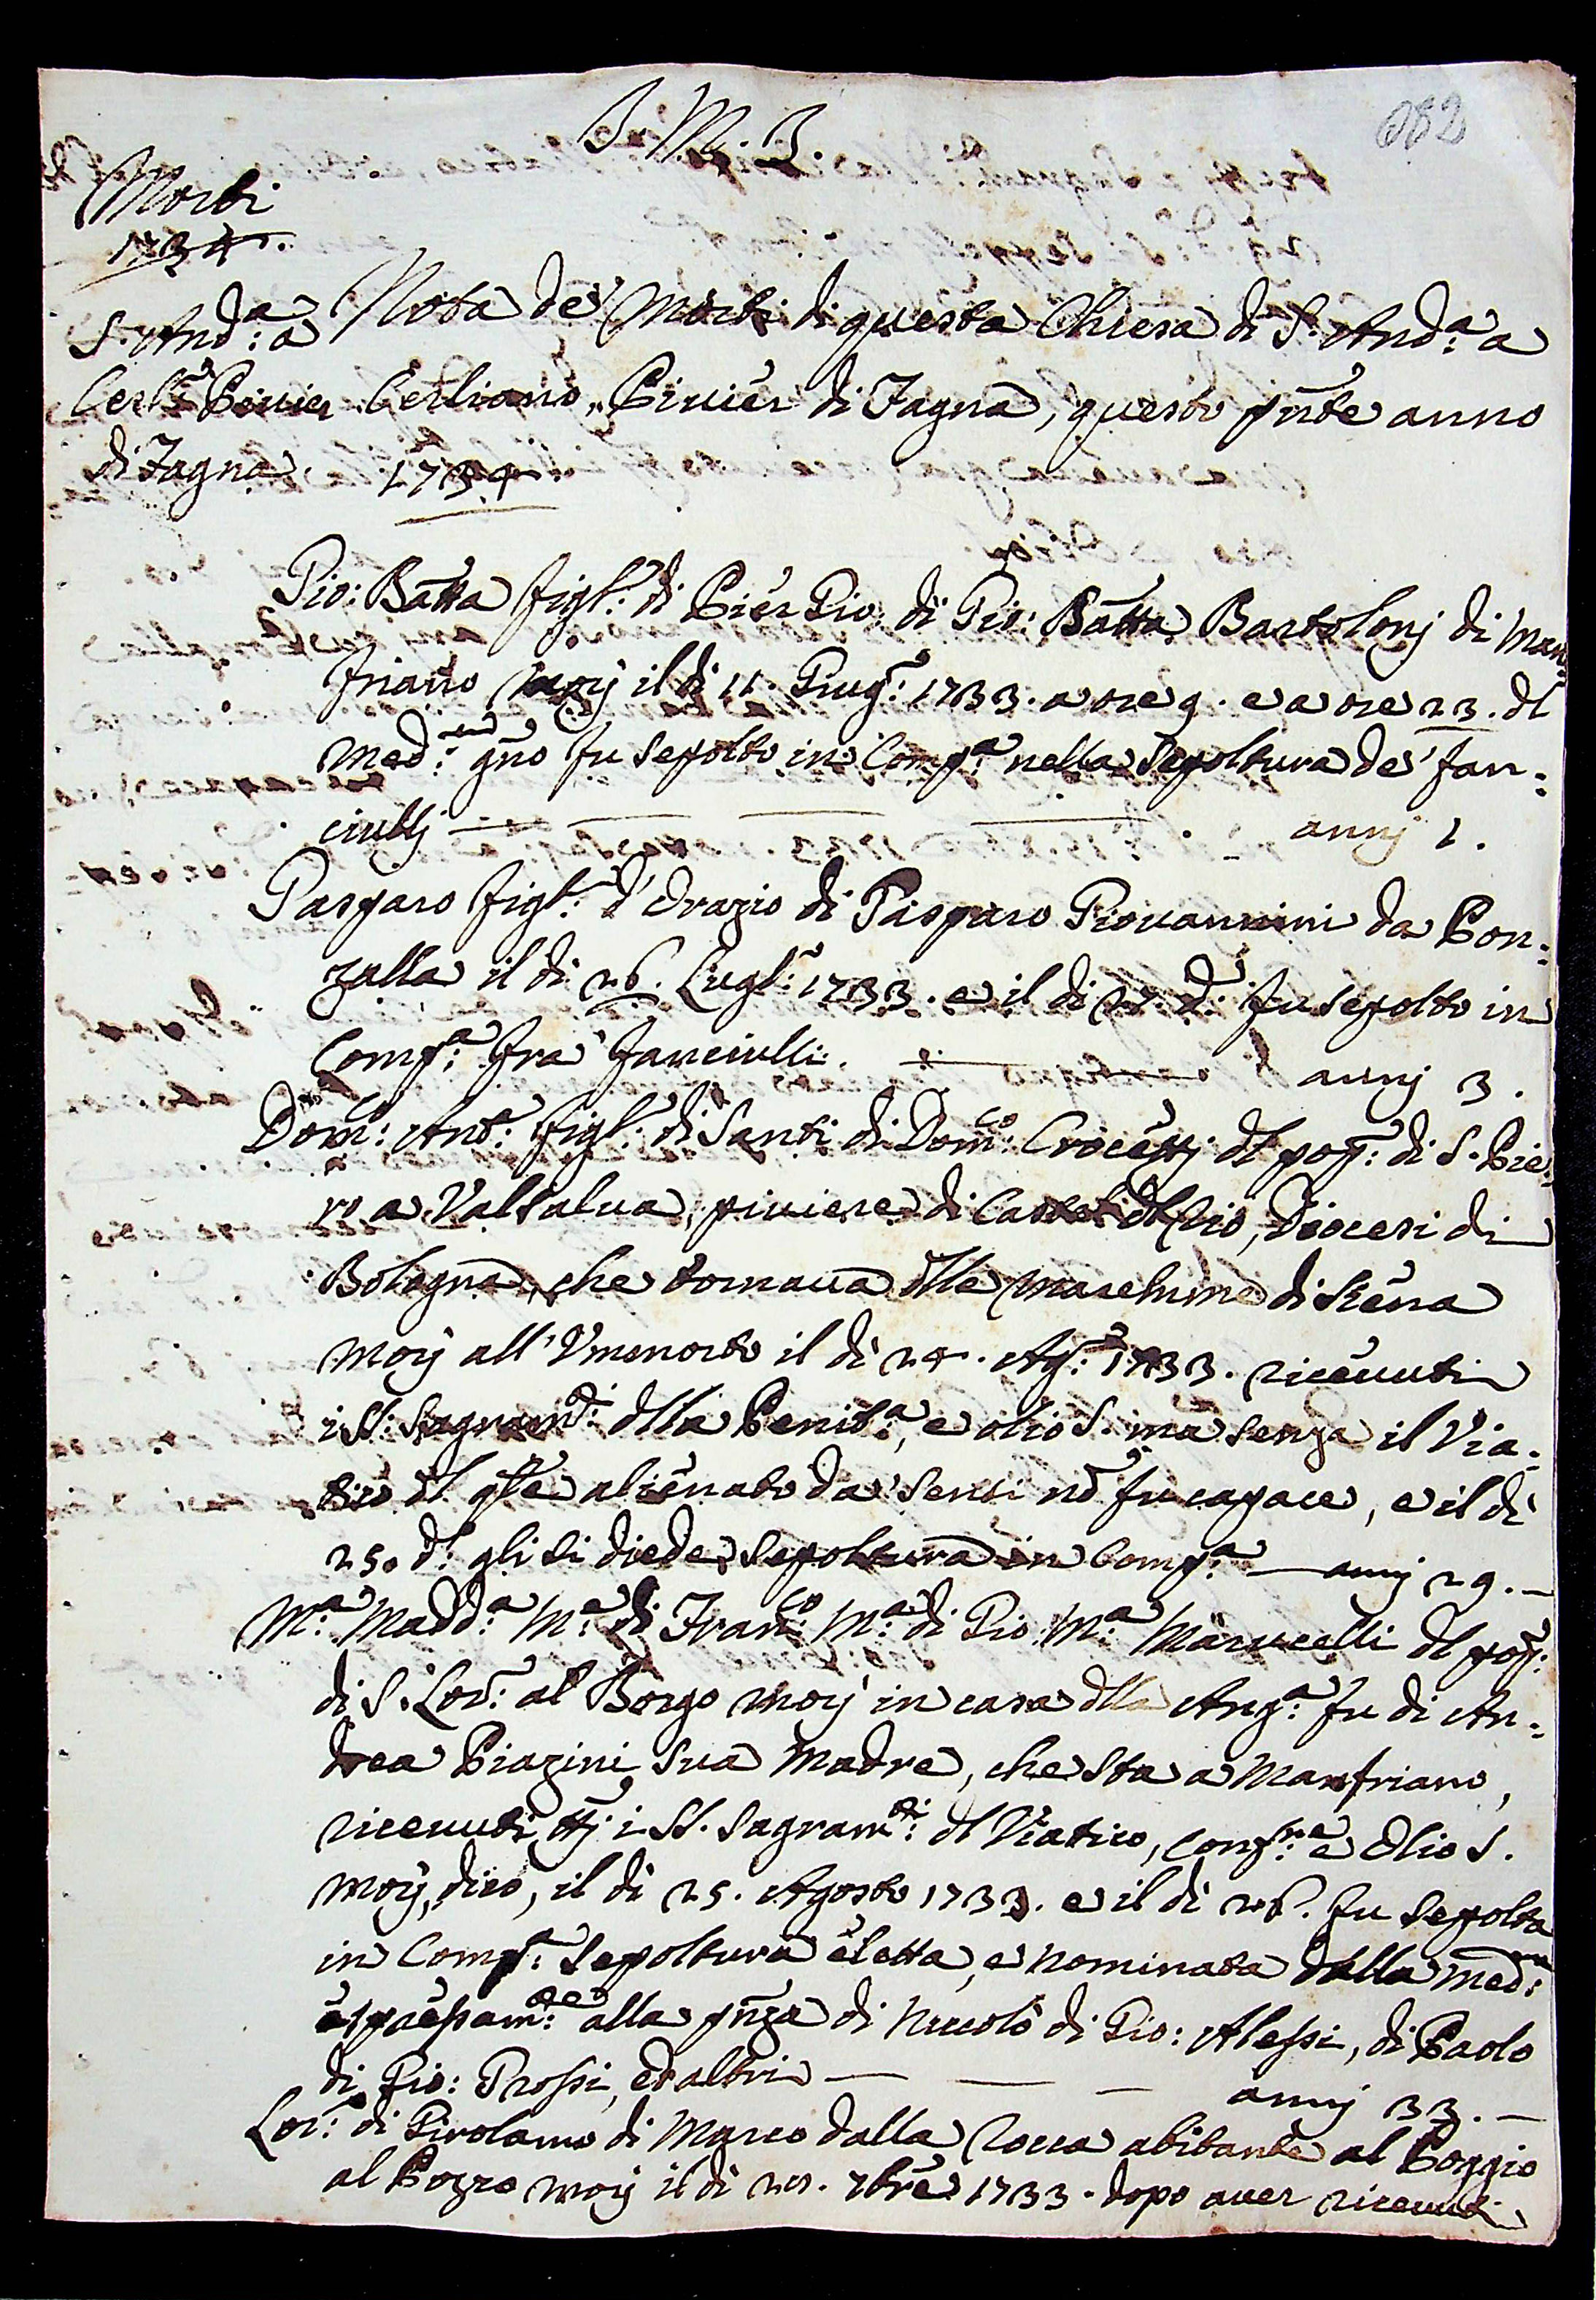 J. M. J.
082
Morti
1734.
S. And:ª a
Cerl:º Pivier
di Fagna.
Nota de' Morti di questa Chiesa di S. And:ª a
Cerliano, Pivier di Fagna, questo pñte anno
1734.
Gio: Batta figl: di Pier Gio: di Gio: Batta Bartolonj di Man:
friano morj il dì 11. Giug: 1733. a ore 9. e a ore 23. dl
med:mo gño fu sepolto in Comp:ª nella Sepoltura de' fan:
ciullj annj 1.
Gasparo figl: d'Orazio di Gasparo Giovannini da Pon:
zalla il dì 26. Lugl: 1733. e il dì 27. d: fu sepolto in
Comp:ª fra' fanciulli. annj 3.
Dom:co Ant:º figl: di Santi di Dom:co Crocettj dl pop: di S. Pie:
ro a Valsalva, piviere di Castel dl Rio, Diocesi di
Bologna, che tornava dlle Maremme di Siena
morj all'Ummorto il dì 24. Ag: 1733. ricevuti
i SS: Sagram:ti dlla Penit:ª, e olio S. ma senza il Via:
tico dl qle alienato da' sensi nō fu capace, e il dì
25. d: gli si diede sepoltura in Comp:ª annj 29.
M:ª Madd:ª M:e di Fran:co M:ª di Gio: M:ª Marucelli dl pop:
di S. Lor: al Borgo morj in casa dlla Ang:ª fu di An:
drea Piazini sua Madre, che sta a Manfriano,
ricevuti ttj i SS. Sagram:ti dl Viatico, Conf:ne e Olio S.
morj, dico, il dì 25. Agosto 1733. e il dì 26. fu sepolta
in Comp:ª Sepoltura eletta, e nominata dalla med:ma
espressam:te alla pñza di Niccolò di Gio: Alessi, di Paolo
di Gio: Grossi, ed altri annj 33.
Lor: di Girolamo di Marco dalla Rocca abitante al Poggio
al Pozzo morj il dì 27. 7bre 1733. dopo aver ricevuti